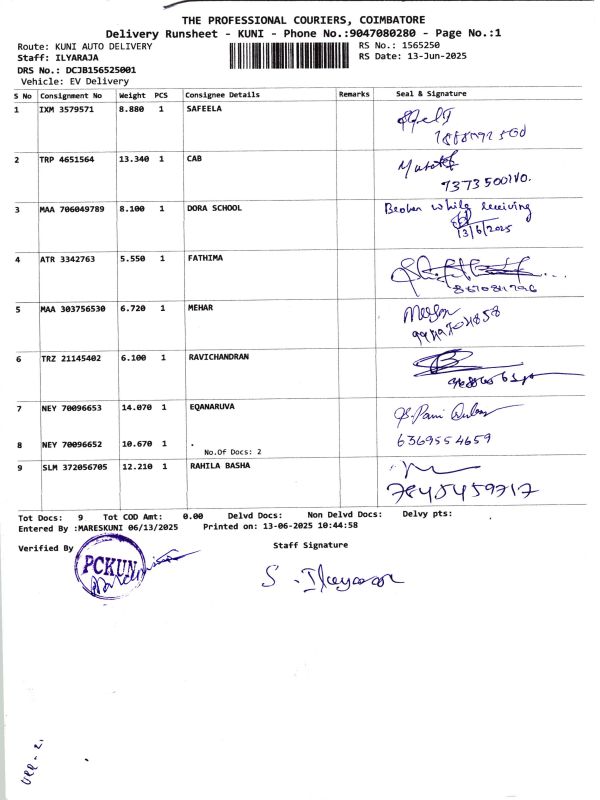 THE PROFESSIONAL COURIERS, COIMBATORE
Delivery Runsheet - KUNI - Phone No.:9047080280 - Page No.:1
Route: KUNI AUTO DELIVERY RS No.: 1565250
Staff: ILYARAJA RS Date: 13-Jun-2025
DRS No.: DCJB156525001
Vehicle: EV Delivery
S No Consignment No Weight PCS Consignee Details Remarks Seal & Signature
1 IXM 3579571 8.880 1 SAFEELA
2 TRP 4651564 13.340 1 CAB
3 MAA 706049789 8.100 1 DORA SCHOOL Broken while receiving
13/6/2025
4 ATR 3342763 5.550 1 FATHIMA
5 MAA 303756530 6.720 1 MEHAR
6 TRZ 21145402 6.100 1 RAVICHANDRAN
7 NEY 70096653 14.070 1 EQANARUVA
8 NEY 70096652 10.670 1 . 6369554659
No.Of Docs: 2
9 SLM 372056705 12.210 1 RAHILA BASHA
Tot Docs: 9 Tot COD Amt: 0.00 Delvd Docs: Non Delvd Docs: Delvy pts:
Entered By :MARESKUNI 06/13/2025 Printed on: 13-06-2025 10:44:58
Verified By Staff Signature
PCKUN